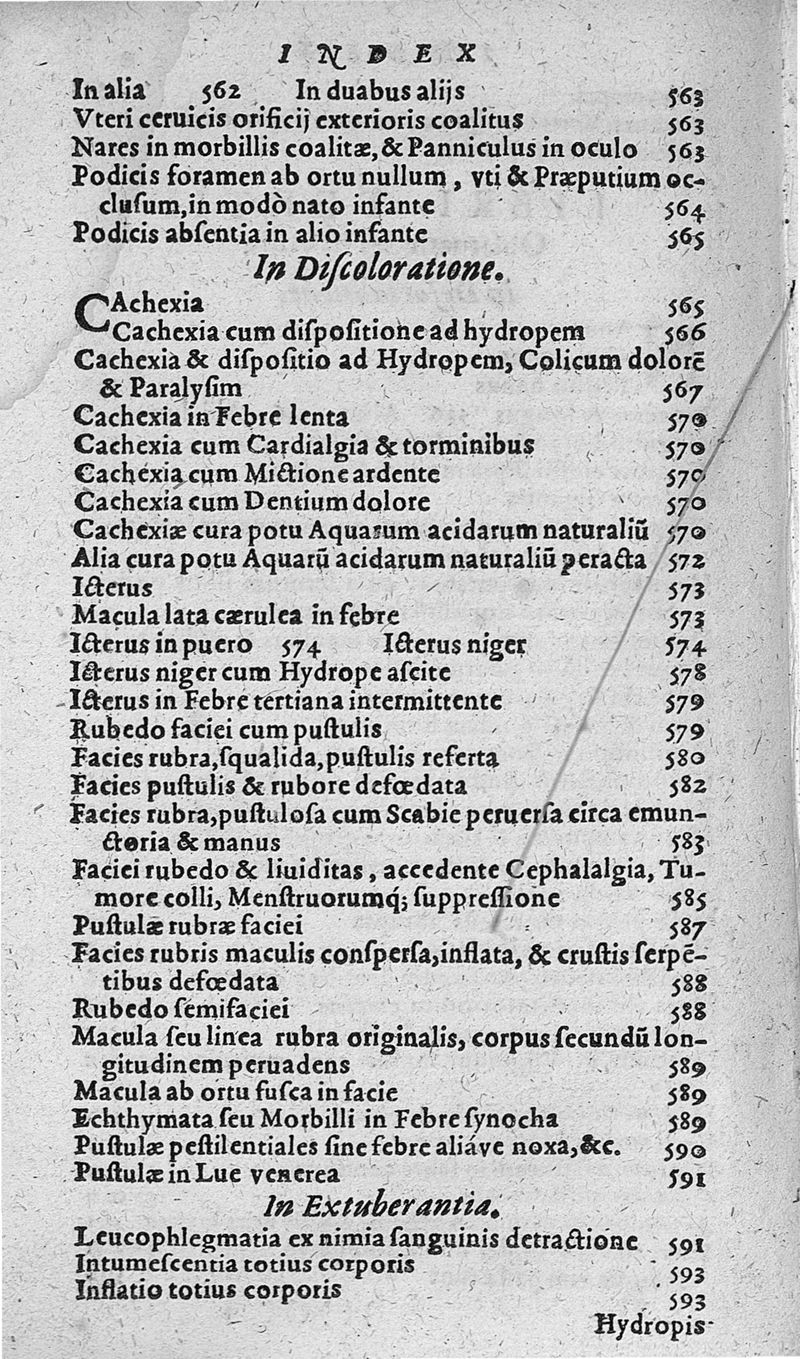 INDEX
In alia 562 In duabus alijs 563
Vteri ceruicis orificij exterioris coalitus 563
Nares in morbillis coalitæ, & Panniculus in oculo 563
Podicis foramen ab ortu nullum, vti & Præputium oc-
cluſum, in modò nato infante 564
Podicis abſentia in alio infante 565
In Diſcoloratione.
CAchexia 565
Cachexia cum diſpoſitione ad hydropem 566
Cachexia & diſpoſitio ad Hydropem, Colicum dolorē
& Paralyſim 567
Cachexia in Febre lenta 570
Cachexia cum Cardialgia & torminibus 570
Cachexia cum Mictione ardente 570
Cachexia cum Dentium dolore 570
Cachexiæ cura potu Aquarum acidarum naturaliū 570
Alia cura potu Aquarū acidarum naturaliū ꝑeracta 572
Icterus 573
Macula lata cærulea in febre 573
Icterus in puero 574 Icterus niger 574
Icterus niger cum Hydrope aſcite 578
Icterus in Febre tertiana intermittente 579
Rubedo faciei cum puſtulis 579
Facies rubra, ſqualida, puſtulis referta 580
Facies puſtulis & rubore defœdata 582
Facies rubra, puſtuloſa cum Scabie peruerſa circa emun-
ctoria & manus 583
Faciei rubedo & liuiditas, accedente Cephalalgia, Tu-
more colli, Menſtruorumq́; ſuppreſſione 585
Puſtulæ rubræ faciei 587
Facies rubris maculis conſperſa, inflata, & cruſtis ſerpē-
tibus defœdata 588
Rubedo ſemifaciei 588
Macula ſeu linea rubra originalis, corpus ſecundū lon-
gitudinem peruadens 589
Macula ab ortu fuſca in facie 589
Echthymata ſeu Morbilli in Febre ſynocha 589
Puſtulæ peſtilentiales ſine febre aliáve noxa, &c. 590
Puſtulæ in Lue venerea 591
In Extuberantia.
Leucophlegmatia ex nimia ſanguinis detractione 591
Intumeſcentia totius corporis 593
Inflatio totius corporis 593
Hydropis